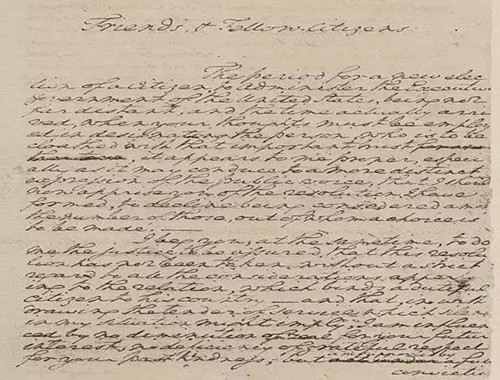 Friends, & Fellow-Citizens
The period for a new elec-
tion of a Citizen, to administer the Executive
government of the United States, being not
far distant, and the time actually arri-
ved, when your thoughts must be employ-
ed in designating the person, who is to be
cloathed with that important trust
, it appears to me proper, especi-
ally as it may conduce to a more distinct
expression of the public voice, that I should
now apprise you of the resolution I have
formed, to decline being considered among
the number of those, out of whom a choice is
to be made.
I beg you, at the same time, to do
me the justice to be assured, that this resolu-
tion has not been taken, without a strict
regard to all the considerations appertain-
ing to the relation, which binds a dutiful
citizen to his country — and that, in with
drawing the tender of service which silence
in my situation might imply, I am influen-
ced by no diminution of zeal for your future
interest, no deficiency of grateful respect
for your past kindness; but by a full
convictn